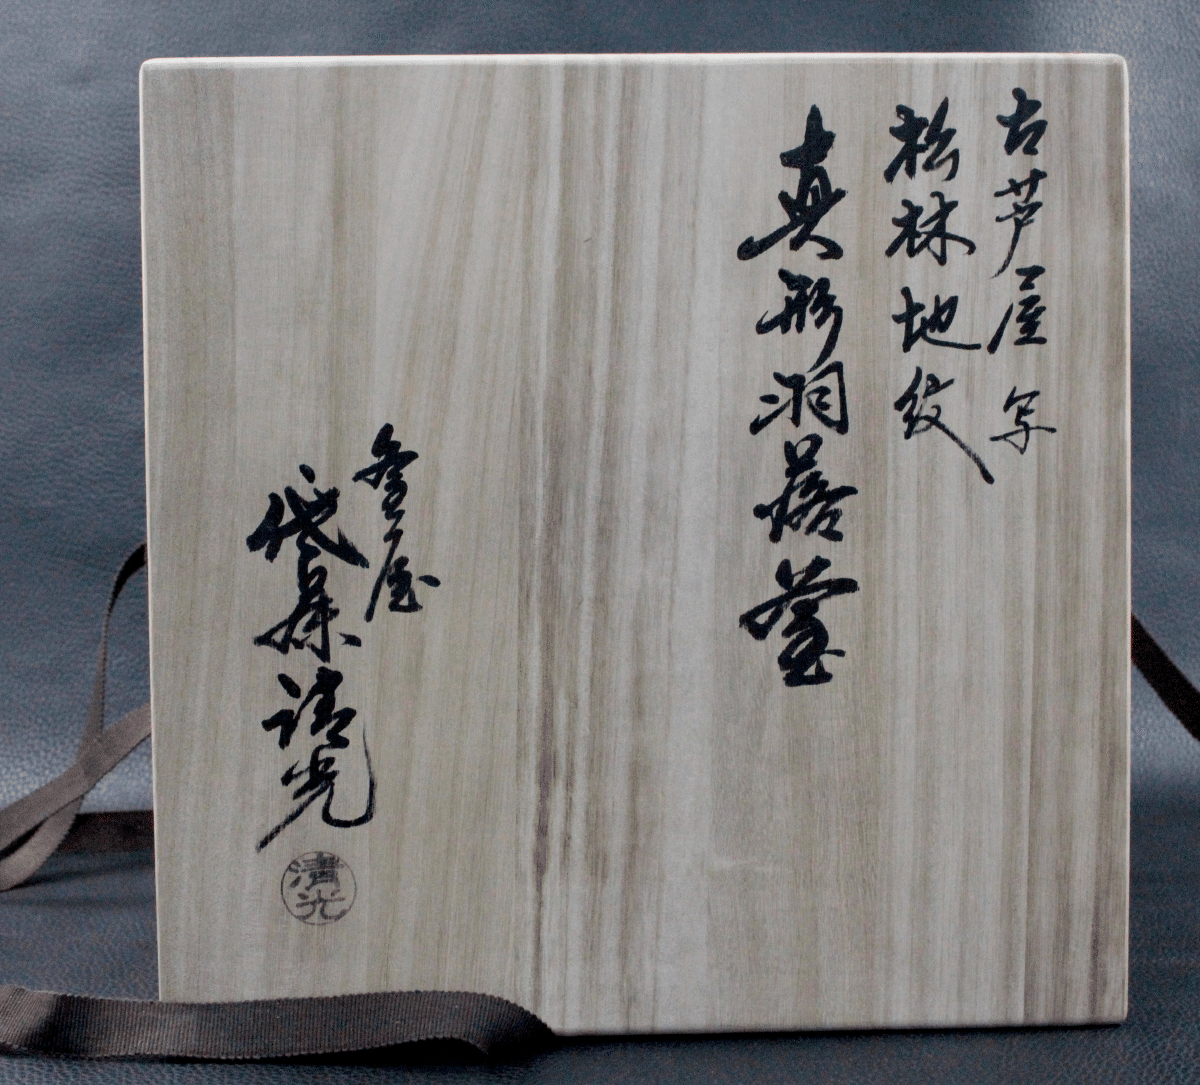 古芦屋写
松林地紋
真形羽落釜
釜屋
清光
清光